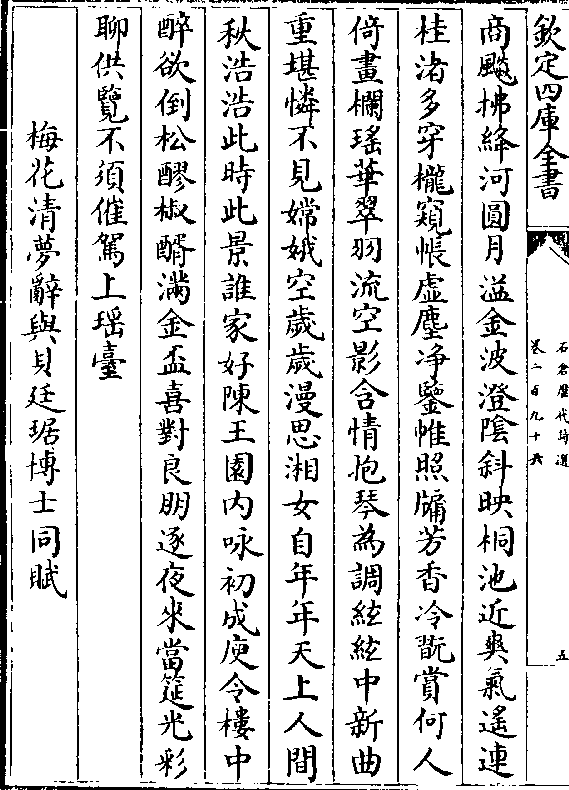 欽定四庫全書
石倉歷代詩選
卷二百九十六
五
商飇拂絳河圓月溢金波澄陰斜映桐池近爽氣遙連
桂渚多穿櫳窺帳虛塵净鑒帷照牖芳香冷翫賞何人
倚畫欄瑤華翠羽流空影含情抱琴為調絃絃中新曲
重堪憐不見嫦娥空歲歲漫思湘女自年年天上人間
秋浩浩此時此景誰家好陳王園内咏初成庾令樓中
醉欲倒松醪椒醑滿金盃喜對良朋逐夜來當筵光彩
聊供覽不須催駕上瑶臺
梅花清夢辭與貝廷琚博士同賦